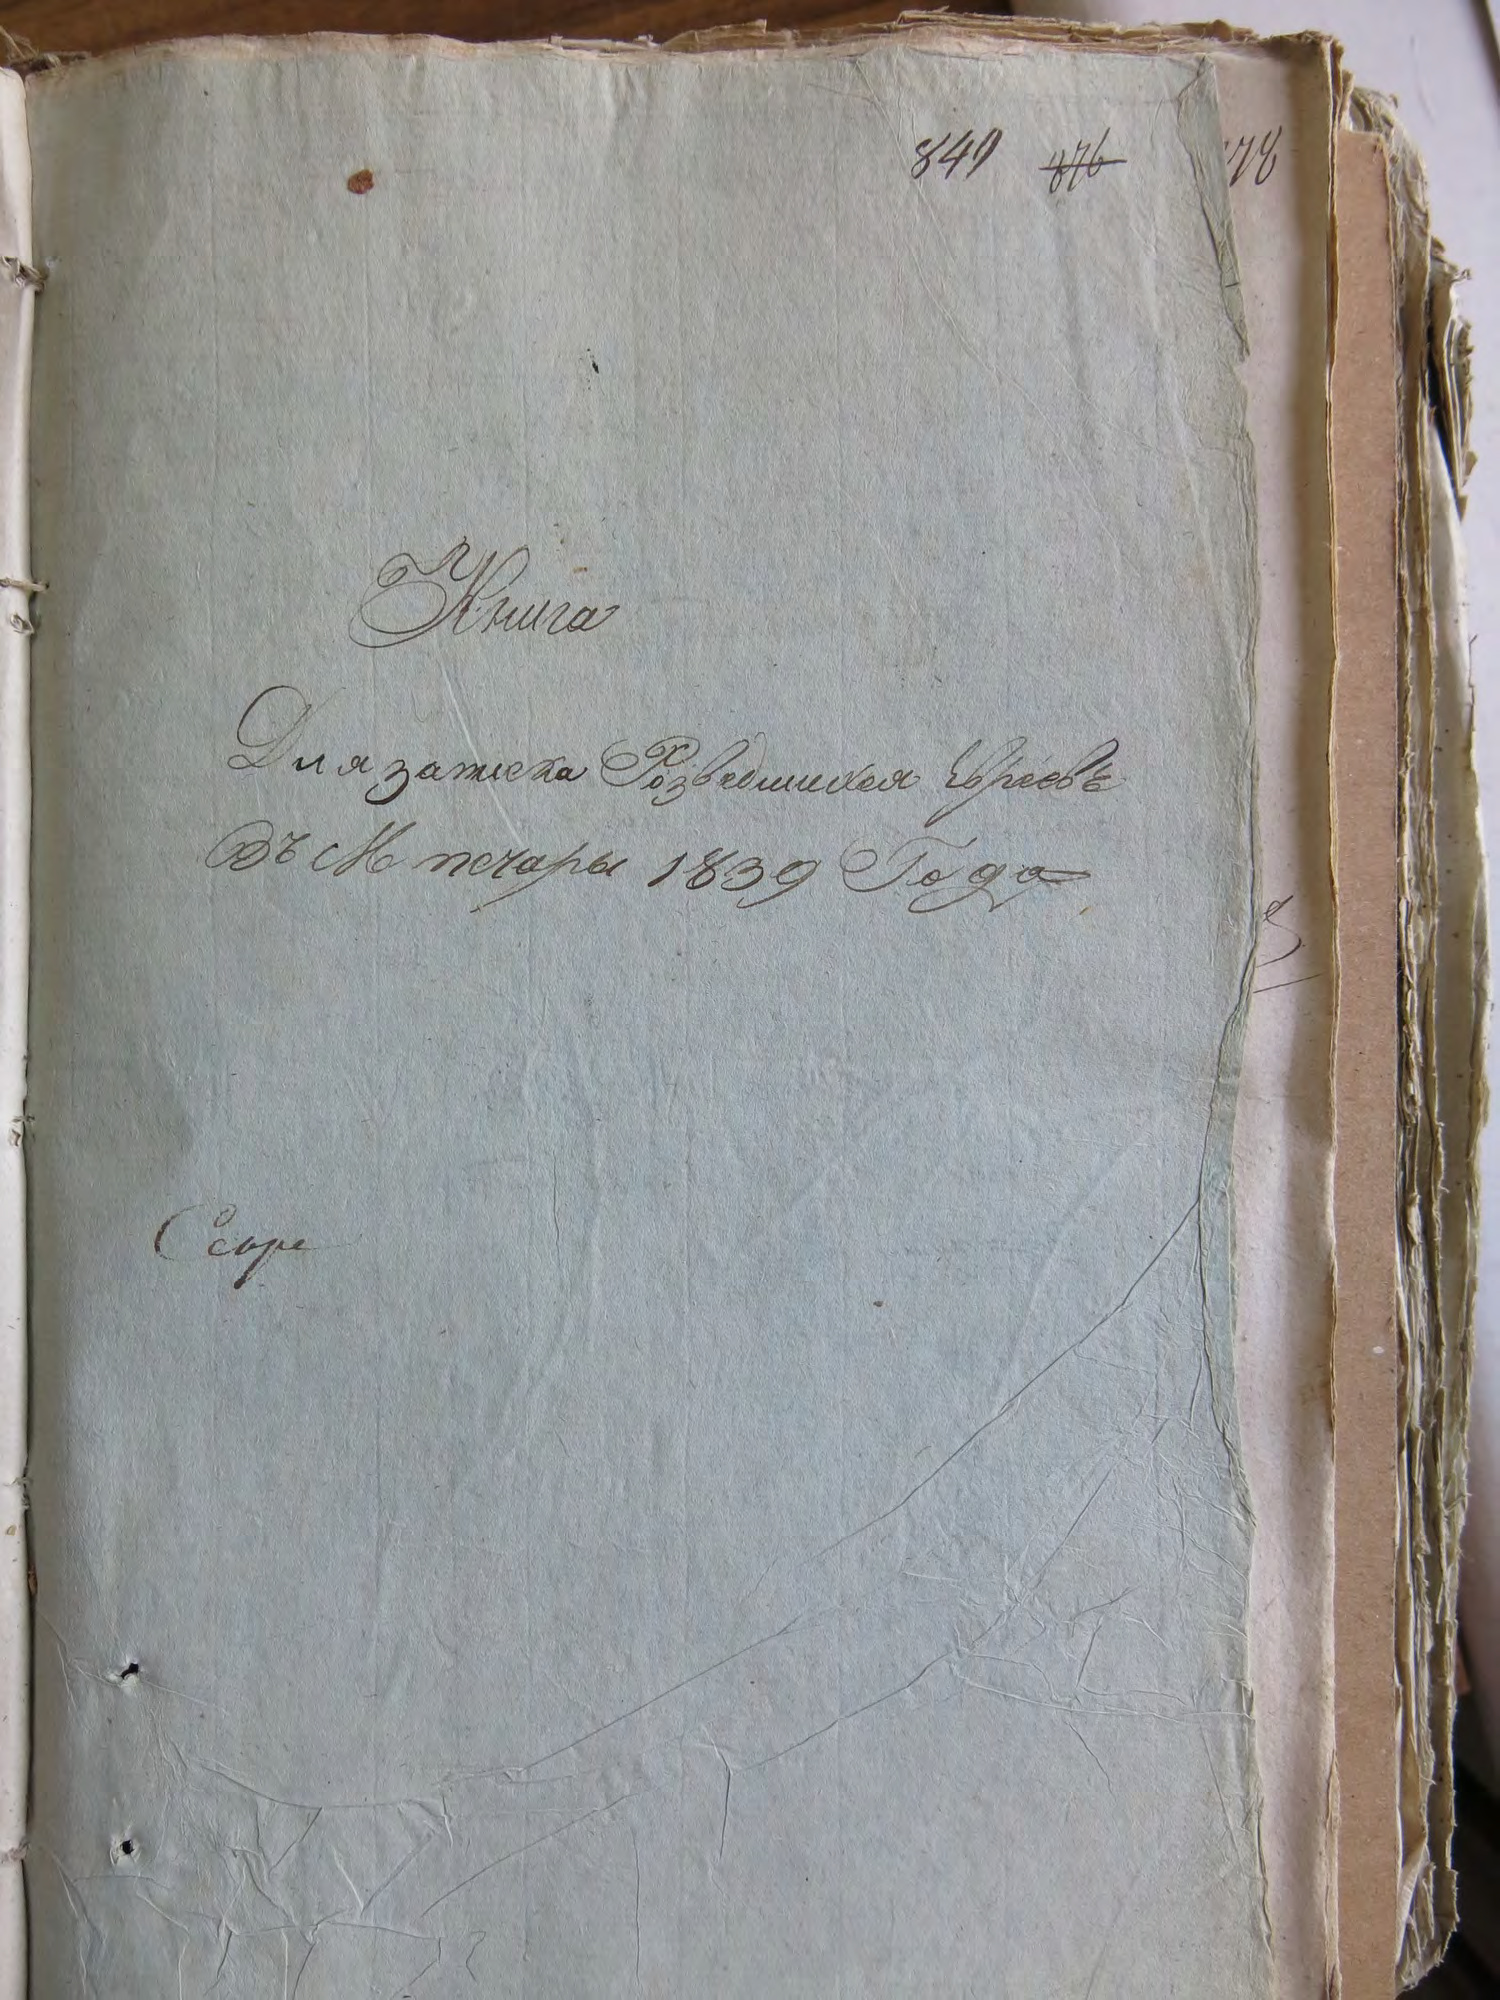 849 876 78
Книга
Для записка Розведшихся Евреевъ
Въ М печары 1839 Года